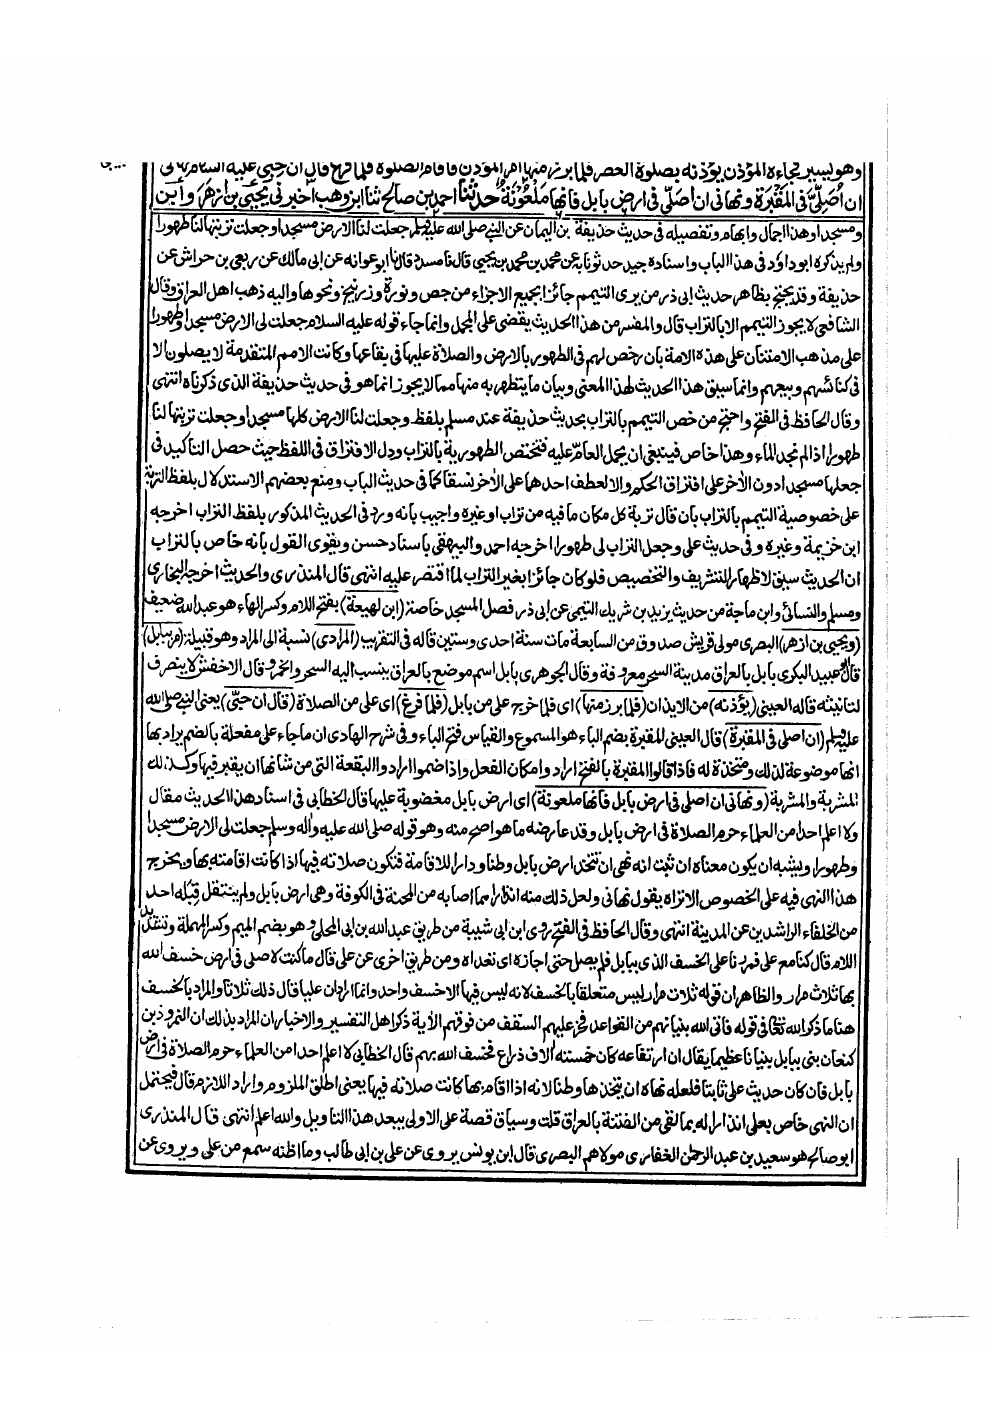 وهو يسير فجاءه المؤذن يؤذنه بصلوة العصر فلما برز منها امر المؤذن فاقام الصلوة فلما فرغ قال ان حبي عليه السلام نهاني
ان اُصَلِّيَ في المَقْبُرَة ونهاني ان اُصَلّي في ارض بابل فانها مَلعُوْنَةٌ حدثنا احمد بن صالح ثنا ابن وهب اخبرني يحيى بن ازهر وابن
ومسجدا وهذا اجمال وابهام وتفصيله في حديث حذيفة بن اليمان عن النبي صلى الله عليه وسلم جعلت لنا الارض مسجدا وجعلت تربتها لنا طهورا
ولم يذكره ابو داود في هذا الباب واسناده جيد حدثونا به عن محمد بن محمد بن يحيى قال نا مسدد قال نا ابو عوانه عن ابي مالك عن ربعي بن حراش عن
حذيفة وقد يحتج بظاهر حديث ابي ذر من يرى التيمم جائزا بجميع الاجزاء من جص ونورة وزرنيخ ونحوها واليه ذهب اهل العراق وقال
الشافعي لا يجوز التيمم الا بالتراب قال والمفسر من هذا الحديث يقضى على المجمل وانما جاء قوله عليه السلام جعلت لى الارض مسجدا وطهورا
على مذهب الامتنان على هذه الامة بان رخص لهم في الطهور بالارض والصلاة عليها في بقاعها وكانت الامم المتقدمة لا يصلون الا
في كنائسهم وبيعهم وانما سيق هذا الحديث لهذا المعنى وبيان ما يتطهر به منها مما لا يجوز انما هو في حديث حذيفة الذى ذكرناه انتهى
وقال الحافظ في الفتح واحتج من خص التيمم بالتراب بحديث حذيفة عند مسلم بلفظ وجعلت لنا الارض كلها مسجدا وجعلت تربتها لنا
طهورا اذا لم نجد الماء وهذا خاص فينبغى ان يحمل العام عليه فتختص الطهورية بالتراب ودل الافتراق في اللفظ حيث حصل التأكيد في
جعلها مسجدا دون الآخر على افتراق الحكم والا لعطف احدهما على الآخر نسقا كما في حديث الباب ومنع بعضهم الاستدلال بلفظ التربة
على خصوصية التيمم بالتراب بان قال تربة كل مكان ما فيه من تراب او غيره واجيب بانه ورد في الحديث المذكور بلفظ التراب اخرجه
ابن خزيمة وغيره وفي حديث على وجعل التراب لى طهورا اخرجه احمد والبيهقى باسناد حسن ويقوى القول بانه خاص بالتراب
ان الحديث سيق لاظهار التشريف والتخصيص فلو كان جائزا بغير التراب لما اقتصر عليه انتهى قال المنذرى والحديث اخرجه البخارى
ومسلم والنسائى وابن ماجة من حديث يزيد بن شريك التيمى عن ابى ذر فصل المسجد خاصة (ابن لهيعة) بفتح اللام وكسر الهاء هو عبد الله ضعيف
(ويحيى بن ازهر) البصرى مولى قريش صدوق من السابعة مات سنة احدى وستين قاله في التقريب (المرادى) نسبة الى المراد وهو قبيلة (مر ببابل)
قال ابو عبيد البكرى بابل بالعراق مدينة السحر معروفة وقال الجوهرى بابل اسم موضع بالعراق ينسب اليه السحر والخمر وقال الاخفش لا ينصرف
لتانيثه قاله العينى (يؤذنه) من الايذان (فلما برز منها) اى فلما خرج على من بابل (فلما فرغ) اى على من الصلاة (قال ان حبى) يعنى النبي صلى الله
عليه وسلم (ان اصلى في المقبرة) قال العينى المقبرة بضم الباء هو المسموع والقياس فتح الباء وفي شرح الهادى ان ما جاء على مفعلة بالضم يراد بها
انها موضوعة لذلك ومتخذة له فاذا قالوا المقبرة بالفتح ارادوا مكان الفعل واذا ضموا ارادوا البقعة التى من شانها ان يقبر فيها وكذلك
المشربة والمشربة (ونهانى ان اصلى في ارض بابل فانها ملعونة) اى ارض بابل مغضوبة عليها قال الخطابى في اسناد هذا الحديث مقال
ولا اعلم احدا من العلماء حرم الصلاة في ارض بابل وقد عارضه ما هو اصح منه وهو قوله صلى الله عليه واله وسلم جعلت لى الارض مسجدا
وطهورا ويشبه ان يكون معناه ان ثبت انه نهى ان تتخذ ارض بابل وطنا ودارا للاقامة فتكون صلاته فيها اذا كانت اقامته بها ويخرج
هذا النهى فيه على الخصوص الا تراه يقول نهانى ولعل ذلك منه انذار مما اصابه من المحنة في الكوفة وهى ارض بابل ولم ينتقل قبله احد
من الخلفاء الراشدين عن المدينة انتهى وقال الحافظ في الفتح روى ابن ابى شيبة من طريق عبد الله بن ابى المحل وهو بضم الميم وكسر المهملة وتشديد
اللام قال كنا مع على فمررنا على الخسف الذى ببابل فلم يصل حتى اجازه اى تعداه ومن طريق اخرى عن على قال ما كنت لاصلى في ارض خسف الله
بها ثلاث مرار والظاهر ان قوله ثلاث مرار ليس متعلقا بالخسف لانه ليس فيها الا خسف واحد وانما اراد ان عليا قال ذلك ثلاثا والمراد بالخسف
هنا ما ذكر الله تعالى في قوله فاتى الله بنيانهم من القواعد فخر عليهم السقف من فوقهم الآية ذكر اهل التفسير والاخبار ان المراد بذلك ان النمروذ بن
كنعان بنى ببابل بنيانا عظيما يقال ان ارتفاعه كان خمسة آلاف ذراع فخسف الله بهم قال الخطابى لا اعلم احدا من العلماء حرم الصلاة في ارض
بابل فان كان حديث على ثابتا فلعله نهاه ان يتخذها وطنا لانه اذا اقام بها كانت صلاته فيها يعنى اطلق الملزوم واراد اللازم قال فيحتمل
ان النهى خاص بعلى انذارا له بما لقى من الفتنة بالعراق قلت وسياق قصة على الاولى يبعد هذا التاويل والله اعلم انتهى قال المنذرى
ابو صالح هو سعيد بن عبد الرحمن الغفارى مولاهم البصرى قال ابن يونس يروى عن على بن ابى طالب وما اظنه سمع من على ويروى عن